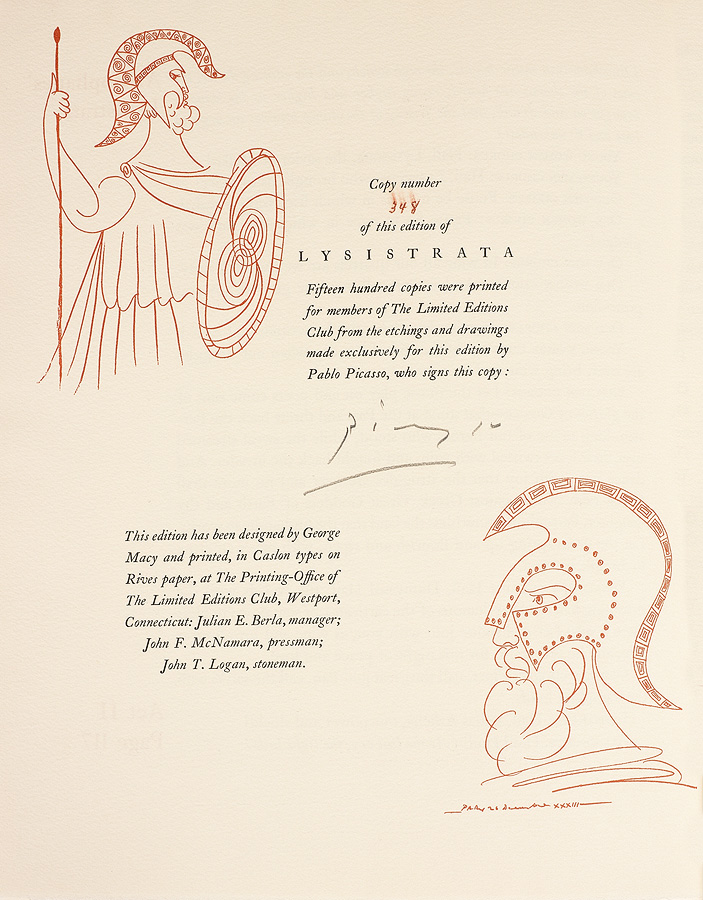 Copy number
348
of this edition of
LYSISTRATA
Fifteen hundred copies were printed
for members of The Limited Editions
Club from the etchings and drawings
made exclusively for this edition by
Pablo Picasso, who signs this copy :
Picasso
This edition has been designed by George
Macy and printed, in Caslon types on
Rives paper, at The Printing-Office of
The Limited Editions Club, Westport,
Connecticut: Julian E. Berla, manager;
John F. McNamara, pressman;
John T. Logan, stoneman.
XXXIII